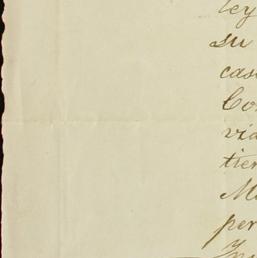 ley
su
cas
Co
via
tien
Me
per